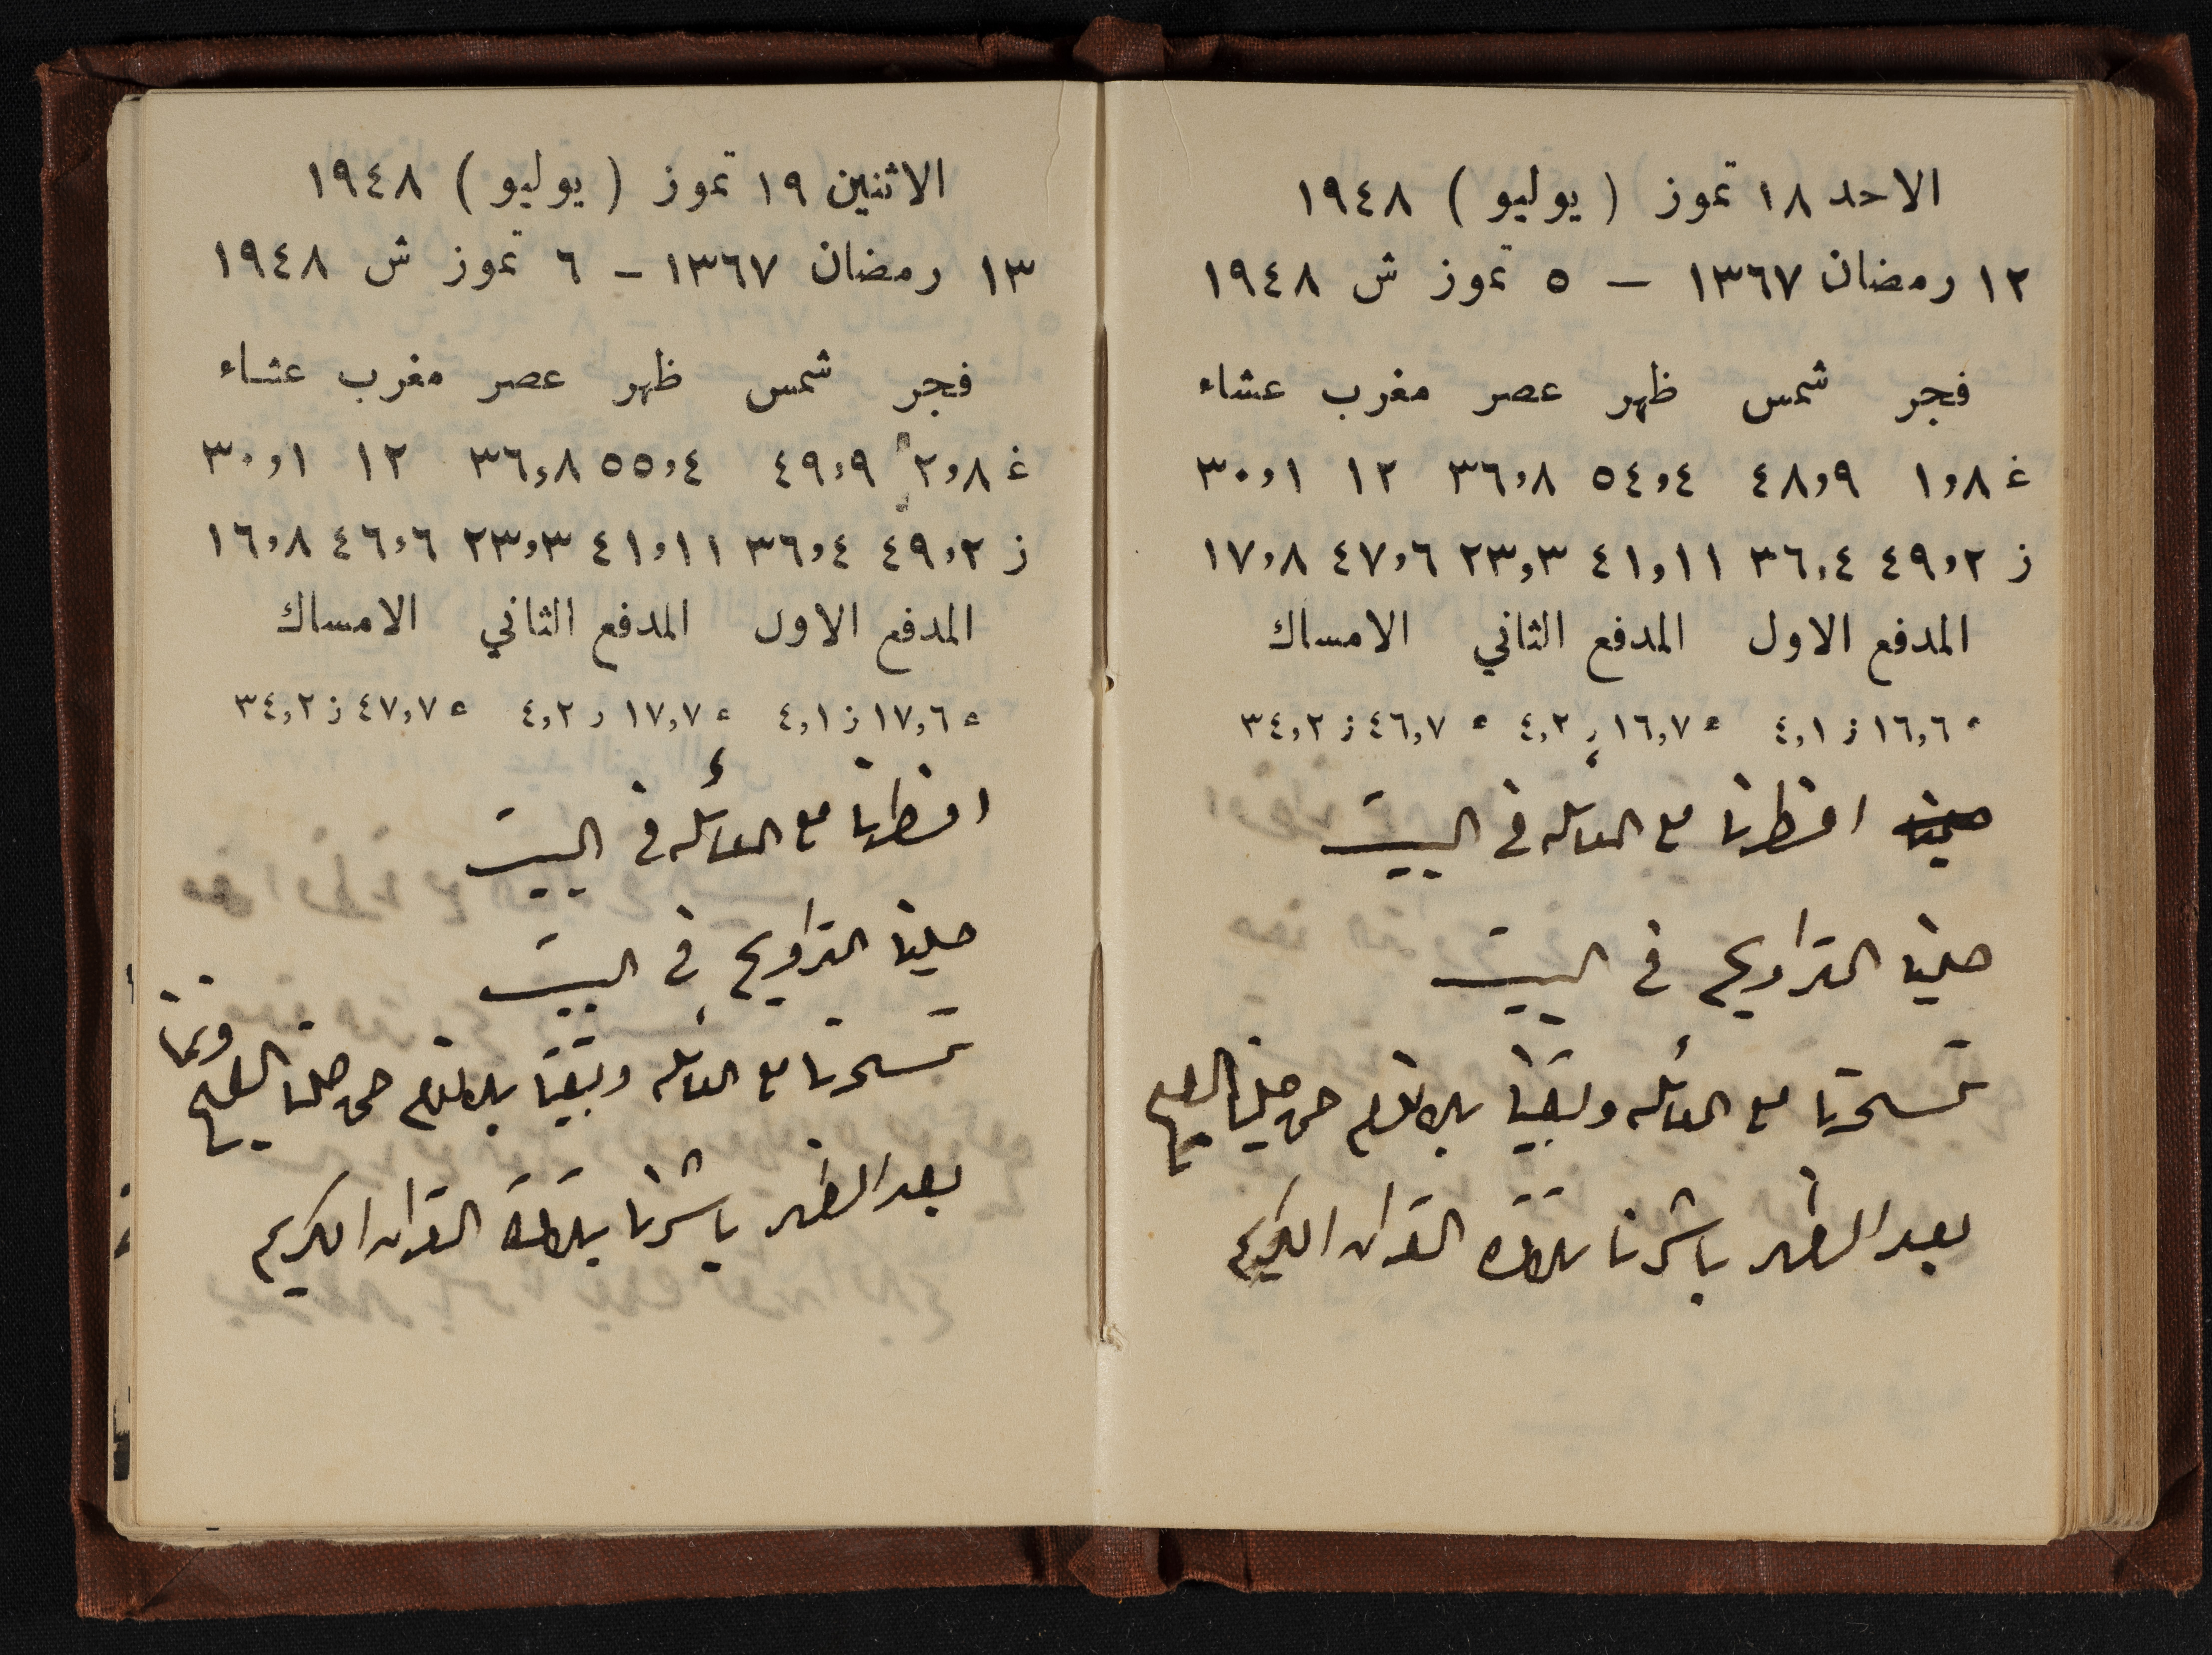 الاحد ١٨ تموز ( يوليو ) ١٩٤٨
١٢ رمضان ١٣٦٧ – ٥ تموز ش ١٩٤٨
فجر شمس ظهر عصر مغرب عشاء
غ ١,٨ ٤٨,٩ ٥٤,٤ ٣٦,٨ ١٢ ٣٠,١
ز ٤٩,٢ ٣٦,٤ ٤١,١١ ٢٣,٣ ٤٧,٦ ١٧,٨
المدفع الاول المدفع الثاني الامساك
ء ١٦,٦ ز ٤,١ ء ١٦,٧ ز ٤,٢ ء ٤٦,٧ ز ٣٤,٢
افطرنا مع العائله في البيت
صلينا التراويح في البيت
تسحرنا مع العائله وبقينا بلا نوم حتى صلينا الصبح
بعد الظهر باشرنا بتلاوة القران الكريم
الاثنين ١٩ تموز ( يوليو ) ١٩٤٨
١٣ رمضان ١٣٦٧ – ٦ تموز ش ١٩٤٨
فجر شمس ظهر عصر مغرب عشاء
غ ٢,٨ ٤٩,٩ ٥٥,٤ ٣٦,٨ ١٢ ٣٠,١
ز ٤٩,٢ ٣٦,٤ ٤١,١١ ٢٣,٣ ٤٦,٦ ١٦,٨
المدفع الاول المدفع الثاني الامساك
ء ١٧,٦ ز ٤,١ ء ١٧,٧ ز ٤,٢ ء ٤٧,٧ ز ٣٤,٢
افطرنا مع العائله في البيت
صلينا التراويح في البيت
تسحرنا مع العائله وبقينا بلا نوم حتى صلينا الصبح ونمنا
بعد الظهر باشرنا بتلاوة القران الكريم